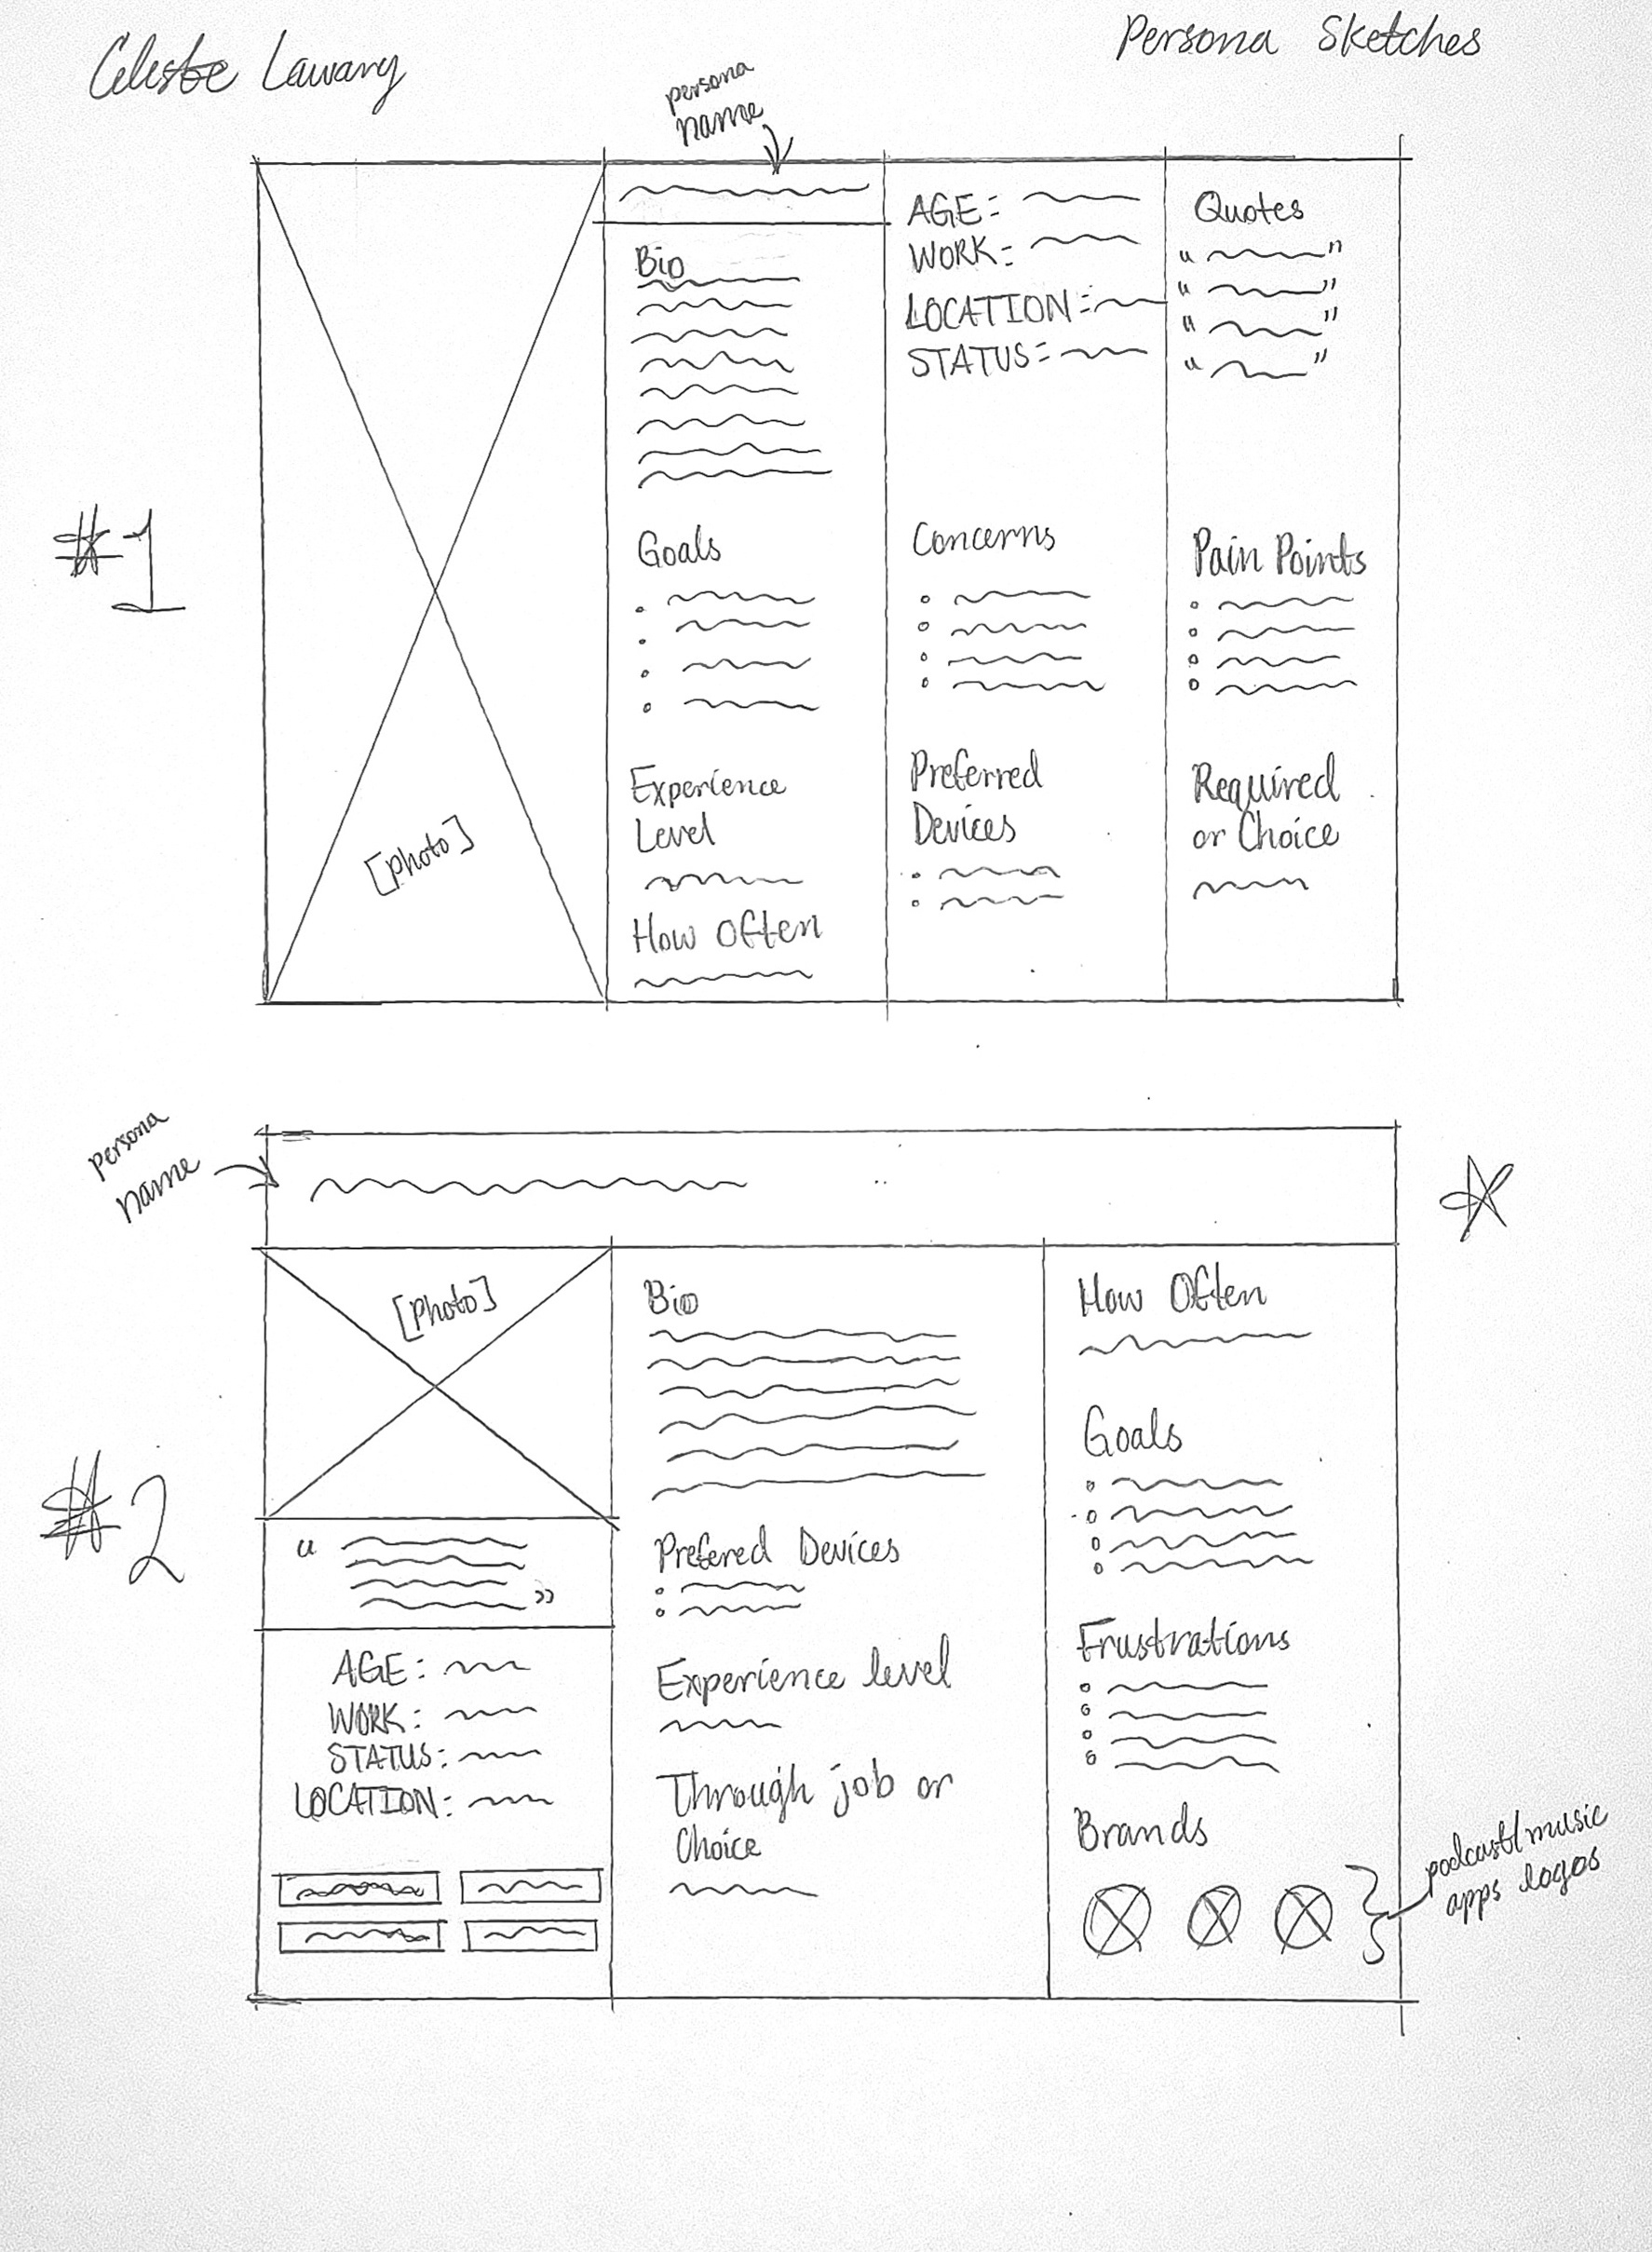 Celeste Lawany
Persona Sketches
persona
name
#1
[photo]
Bio
Goals
Experience
Level
How Often
AGE:
WORK:
LOCATION:
STATUS:
Concerns
Preferred
Devices
Quotes
" "
" "
" "
" "
Pain Points
Required
or Choice
persona
name
#2
[photo]
" "
AGE:
WORK:
STATUS:
LOCATION:
Bio
Prefered Devices
Experience level
Through job or
Choice
How Often
Goals
Frustrations
Brands
podcast/music
apps logos